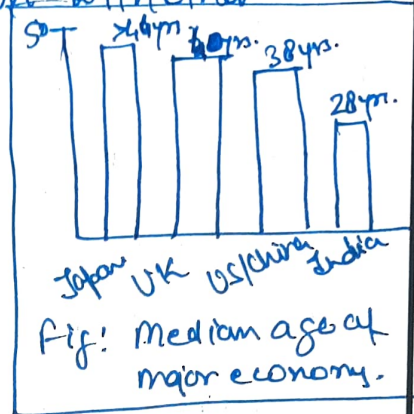 50
>46yrs
40yrs.
38yrs.
28yrs.
Japan UK US/China India
Fig: Median age of
major economy.